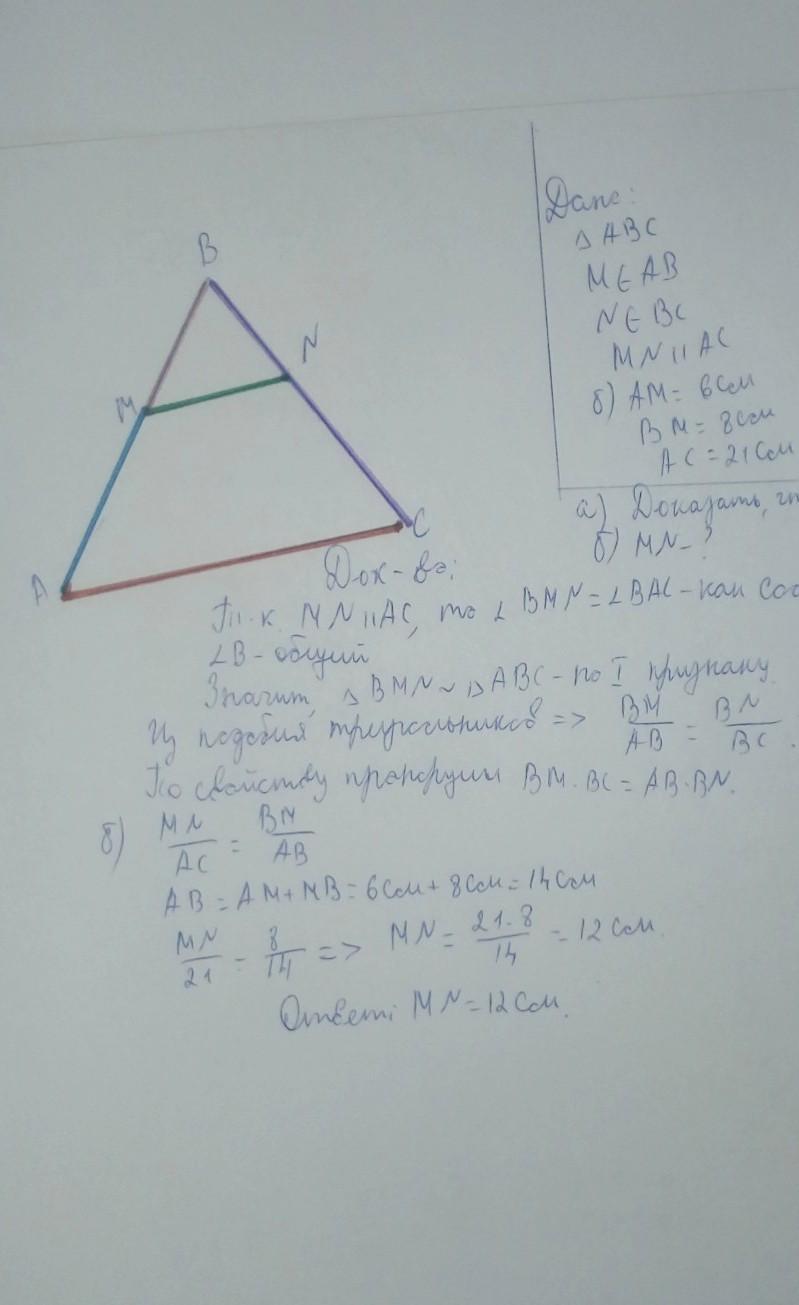 B
N
M
A
C
Дано:
△ ABC
M∈AB
N∈BC
MN || AC
б) AM = 6см
BM = 8см
AC = 21см
а) Доказать,
б) MN - ?
Док-во:
Т.к. MN || AC, то ∠BMN = ∠BAC - как
∠B - общий
Значит, △BMN ~ △ABC - по I признаку
Из подобия треугольников => BM/AB = BN/BC.
По свойству пропорции BM·BC = AB·BN.
б) MN/AC = BM/AB
AB = AM + MB = 6см + 8см = 14см
MN/21 = 8/14 => MN = 21·8/14 = 12см.
Ответ: MN = 12см.